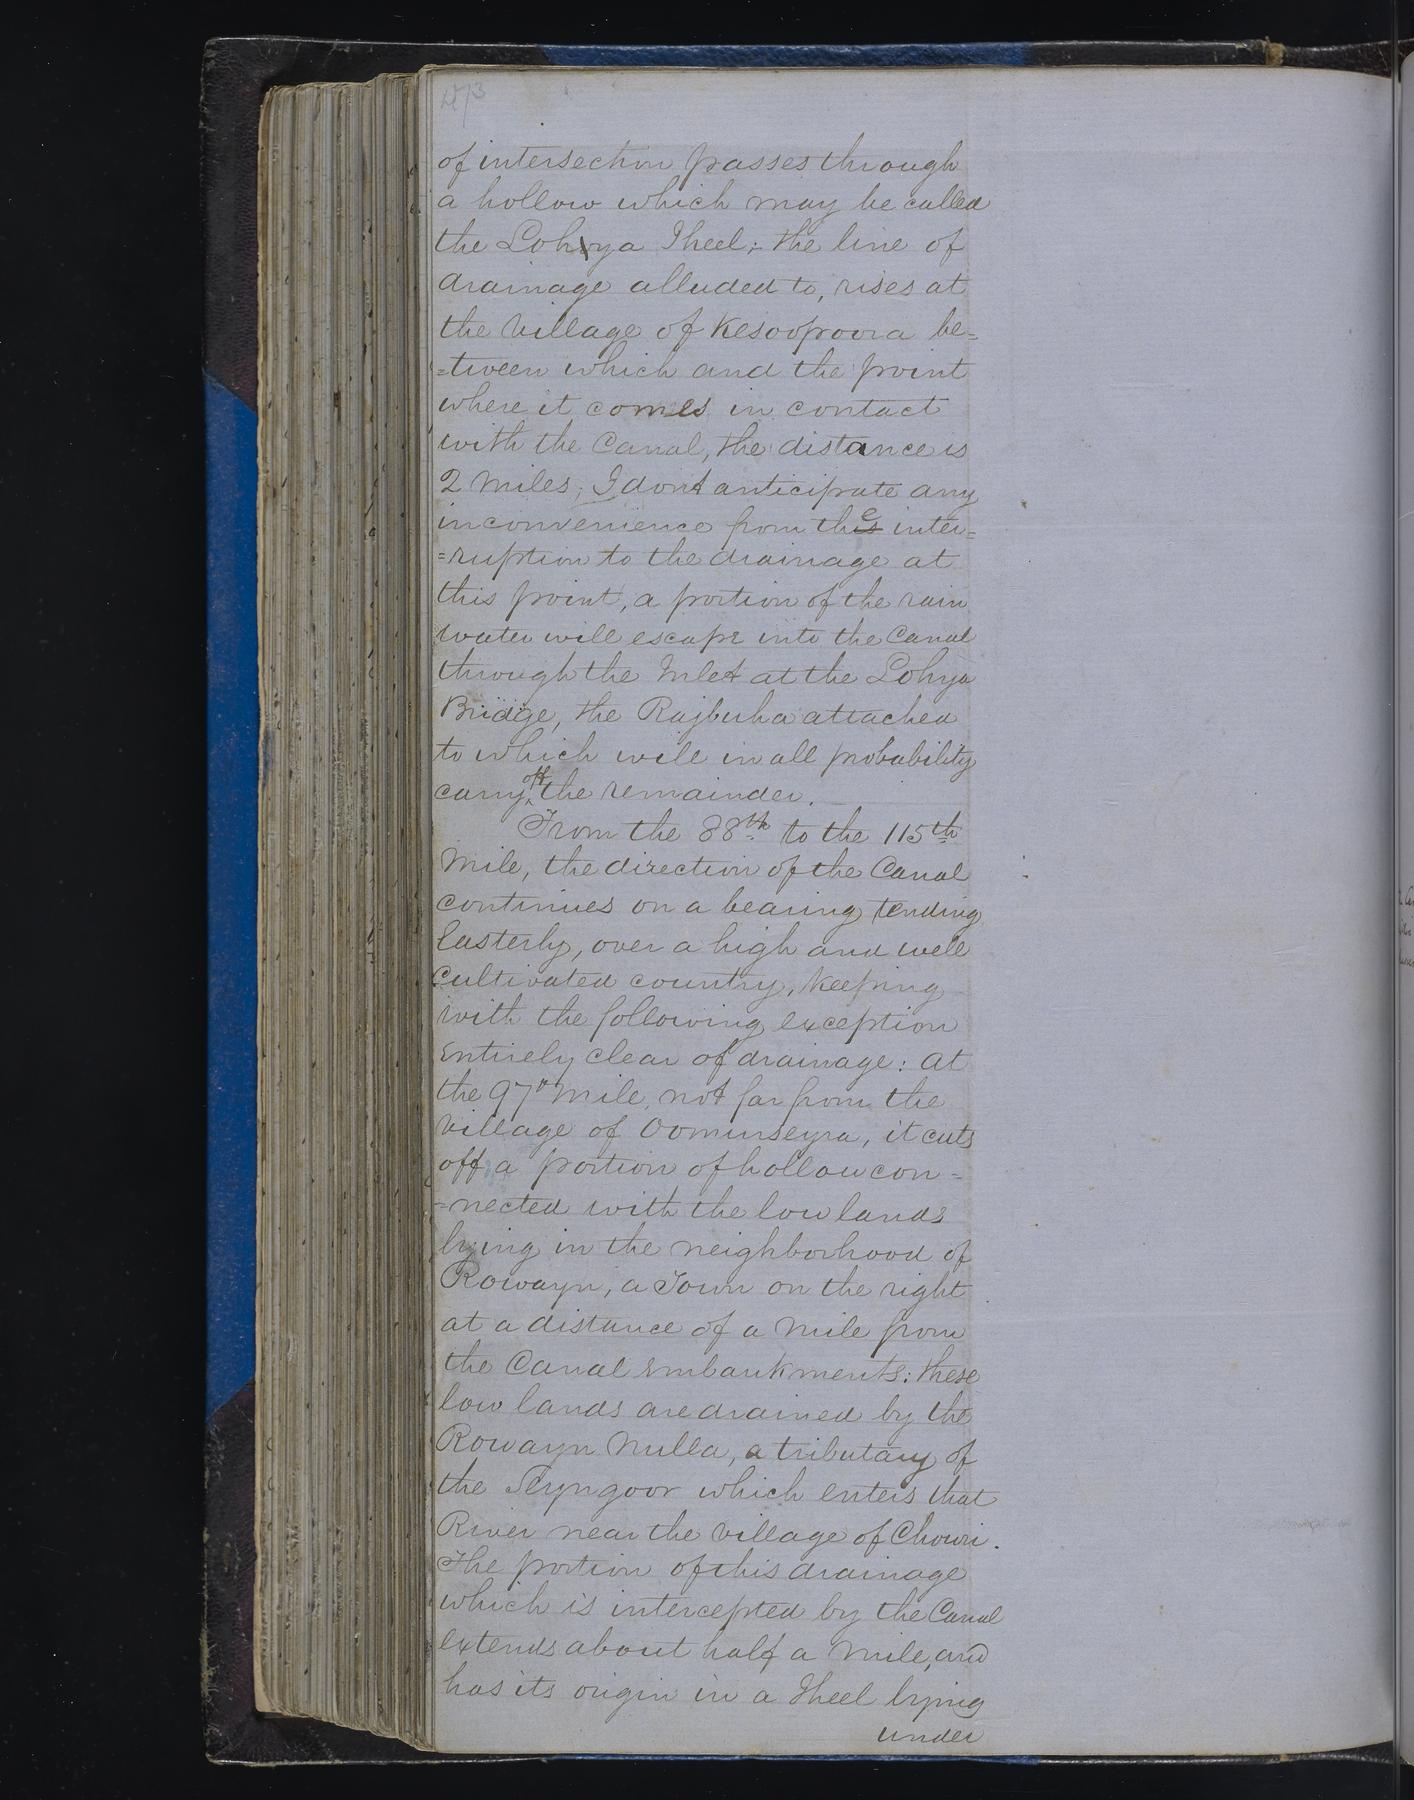 473
of intersection passes through
a hollow which may be called
the Lohya Jheel; the line of
drainage alluded to, rises at
the village of Kesoopoora be=
=tween which and the point
where it comes in contact
with the Canal, the distance is
2 Miles, I don't anticipate any
inconvenience from the inter=
=ruption to the drainage at
this point, a portion of the rain
water will escape into the Canal
through the Inlet at the Lohya
Bridge, the Rajbuha attached
to which will in all probability
carry off the remainder.
From the 88th to the 115th
Mile, the direction of the Canal
continues on a bearing tending
Easterly, over a high and well
cultivated country, keeping
with the following exception
entirely clear of drainage: at
the 97" Mile, not far from the
village of Oomurseyra, it cuts
off a portion of hollow con=
=nected with the low lands
lying in the neighborhood of
Rowayn, a Town on the right
at a distance of a Mile from
the Canal embankments: these
low lands are drained by the
Rowayn Nulla, a tributary of
the Seyngoor which enters that
River near the village of Chowri.
The portion of this drainage
which is intercepted by the Canal
extends about half a Mile, and
has its origin in a Jheel lying
under